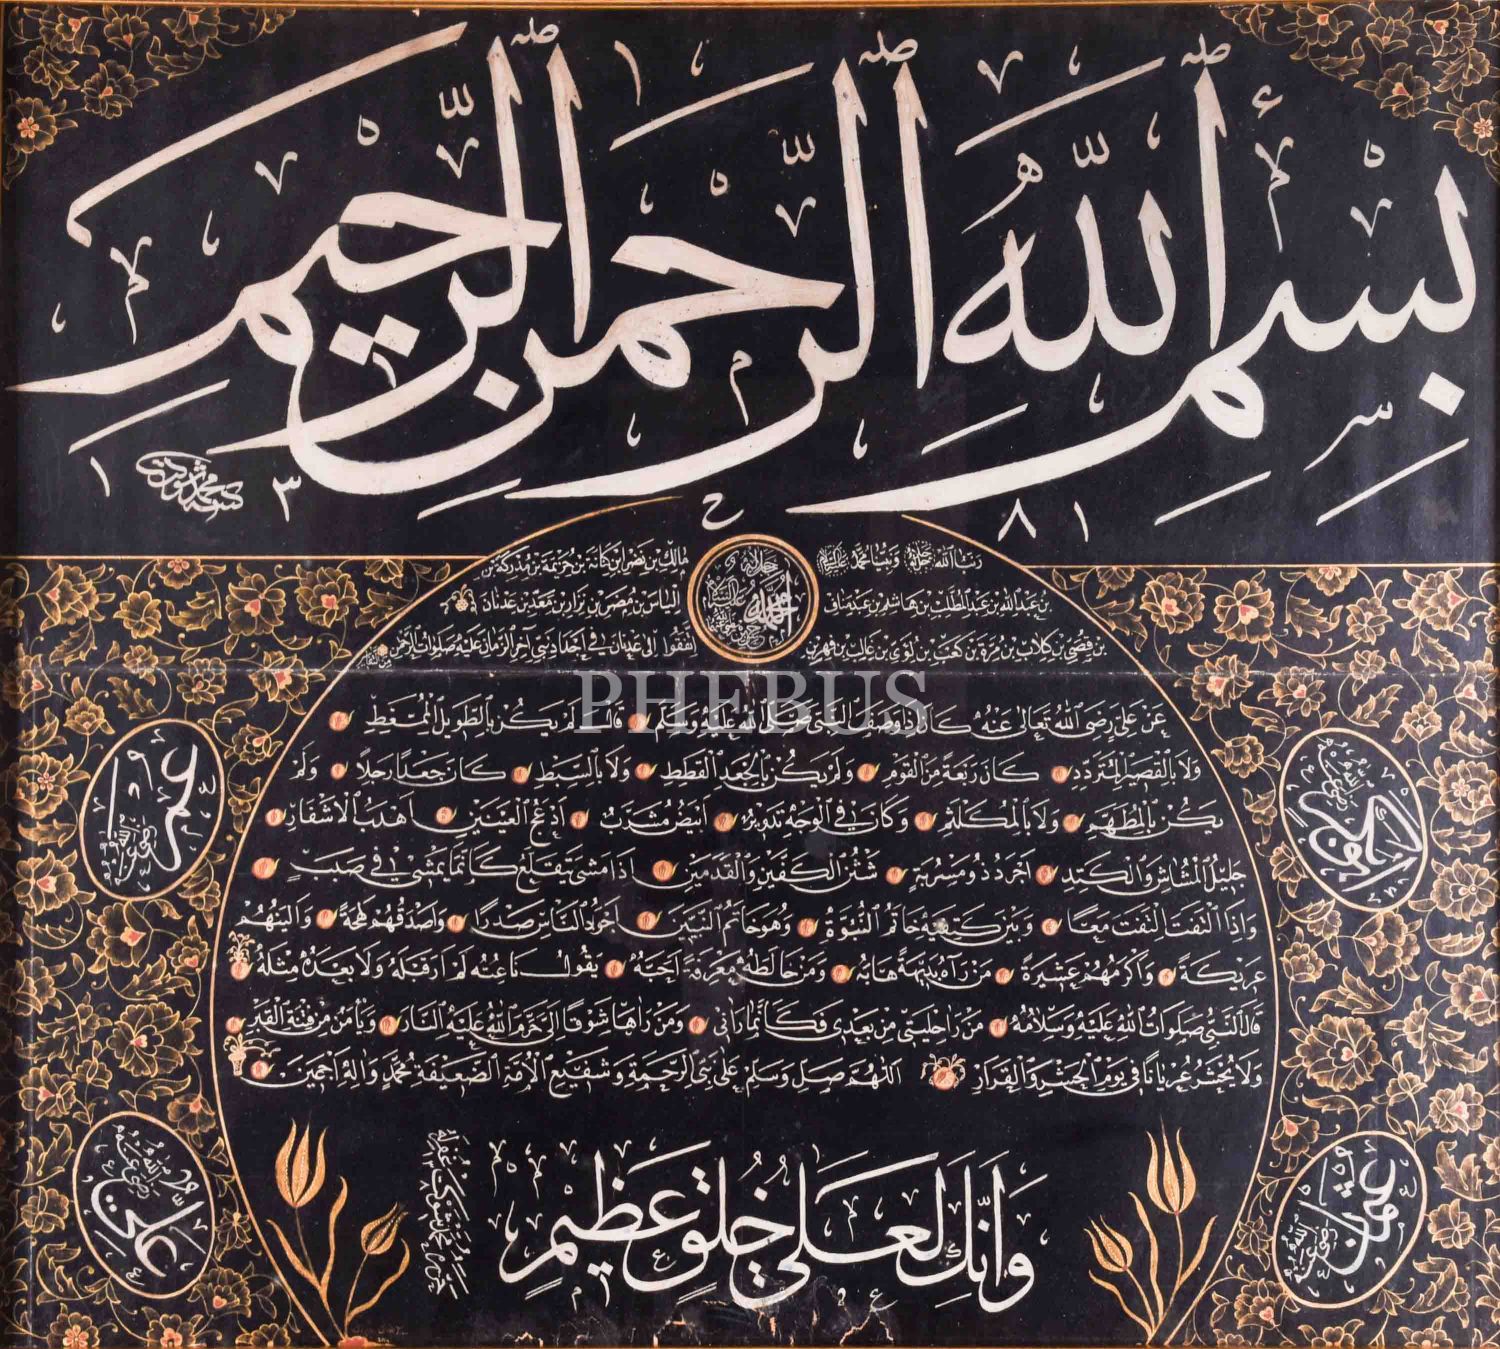 بِسْمِ اللّٰهِ الرَّحْمٰنِ الرَّحِيمِ
كتبه محمد شوقى
١٣ ح ٨١
ربنا الله جل جلاله ونبينا محمد عليه السلام
بن عبد الله بن عبد المطلب بن هاشم بن عبد مناف
بن قصي بن كلاب بن مرة بن كعب بن لؤي بن غالب بن فهر بن
مالك بن نضر ابن كنانة بن خزيمة بن مدركة بن
الياس بن مضر بن نزار بن معد بن عدنان
اتفقوا الى عدنان في اجداد نبي آخر الزمان عليه صلوات الرحمن
PHEBUS
عن علي رضى الله تعالى عنه كان اذا وصف النبي صلى الله عليه وسلم قال لم يكن بالطويل الممغط
ولا بالقصير المتردد كان ربعة من القوم ولم يكن بالجعد القطط ولا بالسبط كان جعدا رجلا ولم
يكن بالمطهم ولا بالمكلثم وكان في الوجه تدوير ابيض مشرب ادعج العينين اهدب الاشفار
جليل المشاش والكتد اجرد ذو مسربة شثن الكفين والقدمين اذا مشى يتقلع كانما يمشي في صبب
واذا التفت التفت معا وبين كتفيه خاتم النبوة وهو خاتم النبيين اجود الناس صدرا واصدقهم لهجة والينهم
عريكة واكرمهم عشيرة من رآه بديهة هابه ومن خالطه معرفة احبه يقول ناعته لم ار قبله ولا بعده مثله
قال النبي صلوات الله عليه وسلامه من رأى حليتي من بعدي فكانما رآني ومن رآها شوقا الي حرم الله عليه النار ويأمن من فتنة القبر
ولا يحشر عريانا في يوم الحشر والقرار اللهم صل وسلم على نبي الرحمة وشفيع الامة الضعيفة محمد واله اجمعين
ابو بكر رضى الله عنه
عمر رضى الله عنه
عثمان رضى الله عنه
علي رضى الله عنه
وَاِنَّكَ لَعَلٰى خُلُقٍ عَظِيمٍ